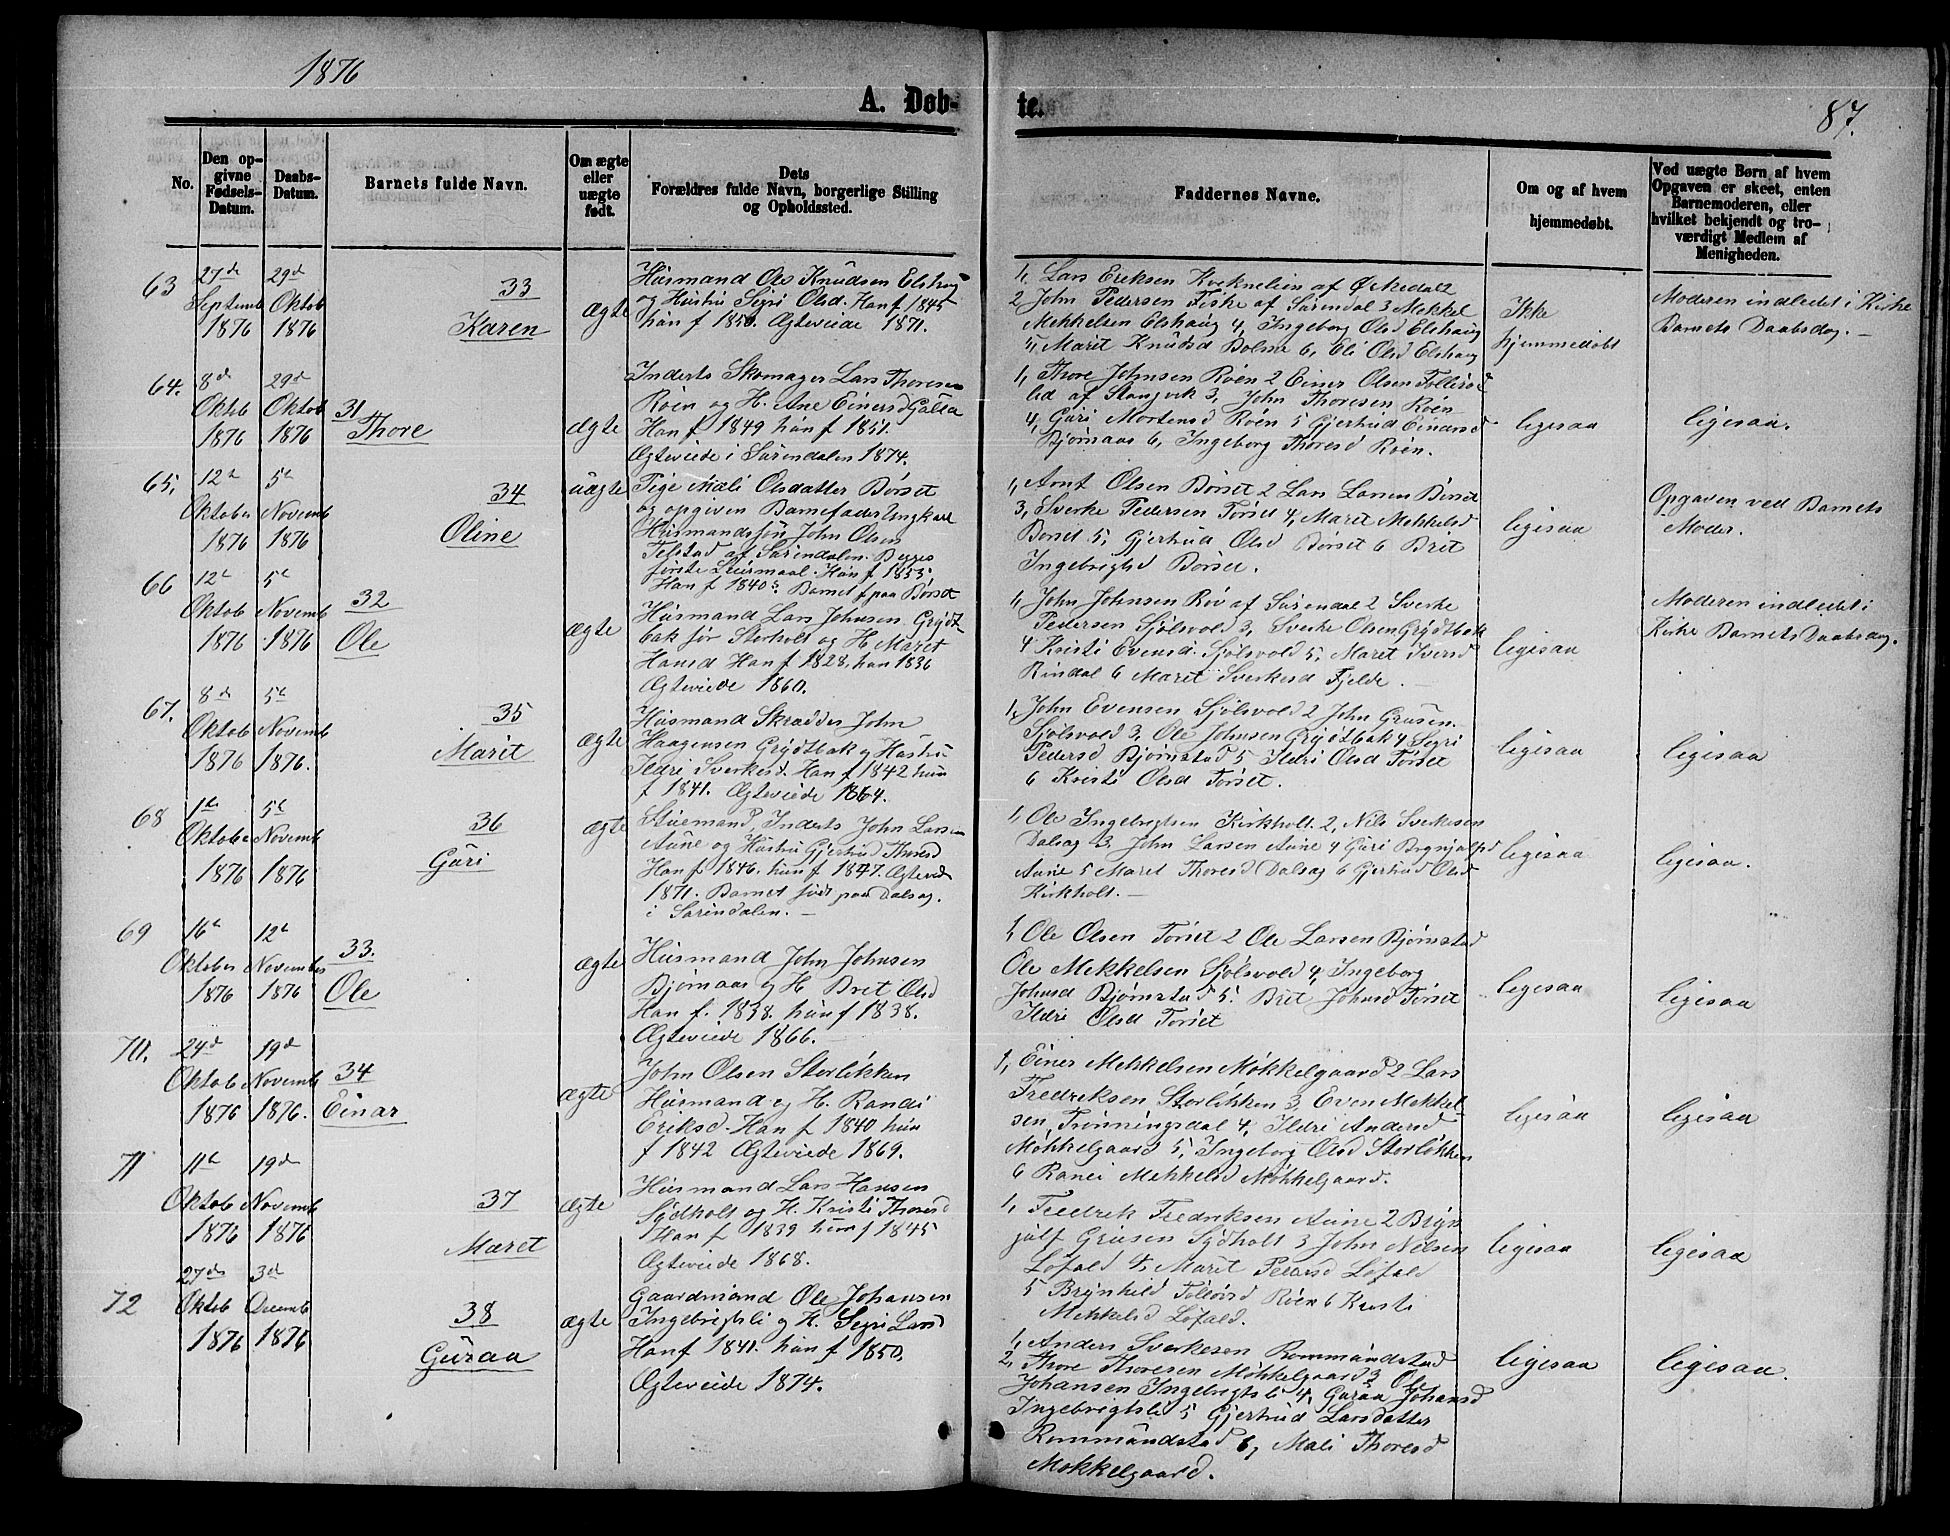 1876
A. Døb-
te.
87.
No.
Den op-
givne
Fødsels-
Datum.
Daabs-
Datum.
Barnets fulde Navn.
Om ægte
eller
uægte
født.
Dets
Forældres fulde Navn, borgerlige Stilling
og Opholdssted.
Faddernes Navne.
Om og af hvem
hjemmedøbt.
Ved uægte Børn af hvem
Opgaven er skeet, enten
Barnemoderen, eller
hvilket bekjendt og tro-
værdigt Medlem af
Menigheden.
63
27de
Septemb
1876
29de
Oktob
1876
33
Karen
ægte
Husmand Ole Knudsen Elshaug
og Hustru Segri Olsd. Han f 1845
hun f 1850. Ægteviede 1871.
1, Lars Eriksen af
2 John Pedersen Fiske af Surendal 3 Mekkel
Mekkelsen Elshaug 4, Ingeborg Olsd Elshaug
5, Maret Knudsd Bolme 6, Eli Olsd Elshaug
Ikke
hjemmedøbt
Moderen indledet i Kirke
Barnets Daabsdag. —
64.
8de
Oktob
1876
29de
Oktob
1876
31
Thore
Ægte
Inderts Skomager Lars Thoresen
Roen og H. Ane Einersd
Han f 1849 hun f 1851.
Ægteviede i Surendalen 1874.
1, Thore Johnsen Roen 2 Einer Olsen
lid af Stangvik 3, John Thoresen Roen
4, Guri Mortensd Roen 5 Gjertrud Einarsd
Bjørnaas 6, Ingeborg Thoresd Roen.
ligesaa
ligesaa.
65,
12te
Oktober
1876
5te
Novemb
1876
34
Oline
uægte
Pige Mali Olsdatter Børset
og opgiven Barnefader Ungkarl
Husmandssøn John Olsen
Telstad af Surendalen. Begges
første Leiermaal. Hun f 1853.
Han f 1840. Barnet f paa Børset
1, Arnt Olsen Børset 2 Lars Larsen Børset
3, Sverke Pedersen Torset 4, Maret Mekkelsd
Børset 5, Gjertrud Olsd Børset 6 Brit
Ingebrigtsd Børset.
ligesaa
Opgaven ved Barnets
Moder.
66
12te
Oktob
1876
5te
Novemb
1876
32
Ole
ægte
Husmand Lars Johnsen Grydt-
bak før Storholt og H Maret
Hansd Han f 1828. hun 1836
Ægteviede 1860.
1, John Johnsen Røv af Surendal 2 Sverke
Pedersen Sjølsvold 3, Sverke Olsen Grydtbak
4 Kristi Evensd. Sjølsvold 5, Maret Iversd
Rindal 6 Maret Sverkesd Fjelde. —
ligesaa
Moderen indledet i
Kirke Barnets Daabsdag.
67.
8de
Oktob
1876
5te
Novemb
1876.
35
Marit
ægte
Husmand Skrædder John
Haagensen Grydtbak og Hustru
Ildri Sverkesd. Han f 1842 hun
f 1841. Ægteviede 1864.
1, John Evensen Sjølsvold 2 John Grusen
Sjølsvold 3, Ole Johnsen Grydtbak 4 Segri
Pedersd Bjørnstad 5 Ildri Olsd Torset
6 Kristi Olsd Torset.
ligesaa
ligesaa
68
1te
Oktober
1876
5te
Novemb
1876
36
Guri
ægte
Stuemand, Inderts John Larsen
Aune og Hustru Gjertrud Thoresd
Han f 1846. hun f 1847. Ægtevied
1871. Barnet født paa Dalsag.
i Surendalen. —
1, Ole Ingebrigtsen Kirkholt. 2, Nils Sverkesen
Dalsag 3, John Larsen Aune 4 Guri Brynjulfsd
Aune 5 Maret Thoresd Dalsag 6 Gjertrud Olsd
Kirkholt. —
ligesaa
ligesaa.
69
16te
Oktober
1876
12te
November
1876
33.
Ole
ægte
Husmand John Johnsen
Bjørnaas og H Bret Olsd
Han f. 1838. hun f 1838.
Ægteviede 1866. —
1, Ole Olsen Torset 2 Ole Larsen Bjørnstad
Ole Mekkelsen Sjølsvold 4, Ingeborg
Johnsd Bjørnstad 5. Bret Johnsd Torset
Ildri Olsd Torset
ligesaa
ligesaa
70.
24de
Oktob
1876
19de
Novemb
1876.
34
Einar
ægte
John Olsen Storløkken
Husmand og H. Randi
Eriksd. Han f 1840 hun
f 1842 Ægteviede 1869.
1, Einer Mekkelsen Møkkelgaard 2 Lars
Fredriksen Storløkken 3, Even Mekkel-
sen, Trønningsdal 4, Ildri Andersd
Møkkelgaard 5, Ingeborg Olsd Storløkken
6 Ranei Mekkelsd Møkkelgaard.
ligesaa
ligesaa
71
11te
Oktob
1876
19de
Novemb
1876
37
Maret
ægte
Husmand Lars Hansen
Sydholt og H. Kristi Thoresd
Han f 1839 hun f 1845
Ægteviede 1868.
1, Fredrik Fredriksen Aune 2 Bryn
julf Grusen Sydholt 3 John Nilsen
Løfald 4, Marit Pedersd Løfald
5 Brynhild Roen 6 Kristi
Mekkelsd Løfald.
ligesaa
ligesaa
72
27de
Oktob
1876
3de
Decemb
1876
38
Guraa
ægte
Gaardmand Ole Johansen
Ingebrigtsli og H. Segri Larsd
Han f 1841. hun f 1850.
Ægteviede 1874.
1, Anders Sverkesen Rommundstad
2, Thore Thoresen Møkkelgaard 3 Ole
Johansen Ingebrigtsli 4, Guraa Johansd
Ingebrigtsli 5 Gjertrud Larsdatter
Rommundstad 6, Mali Thoresd
Møkkelgaard.
ligesaa
ligesaa.